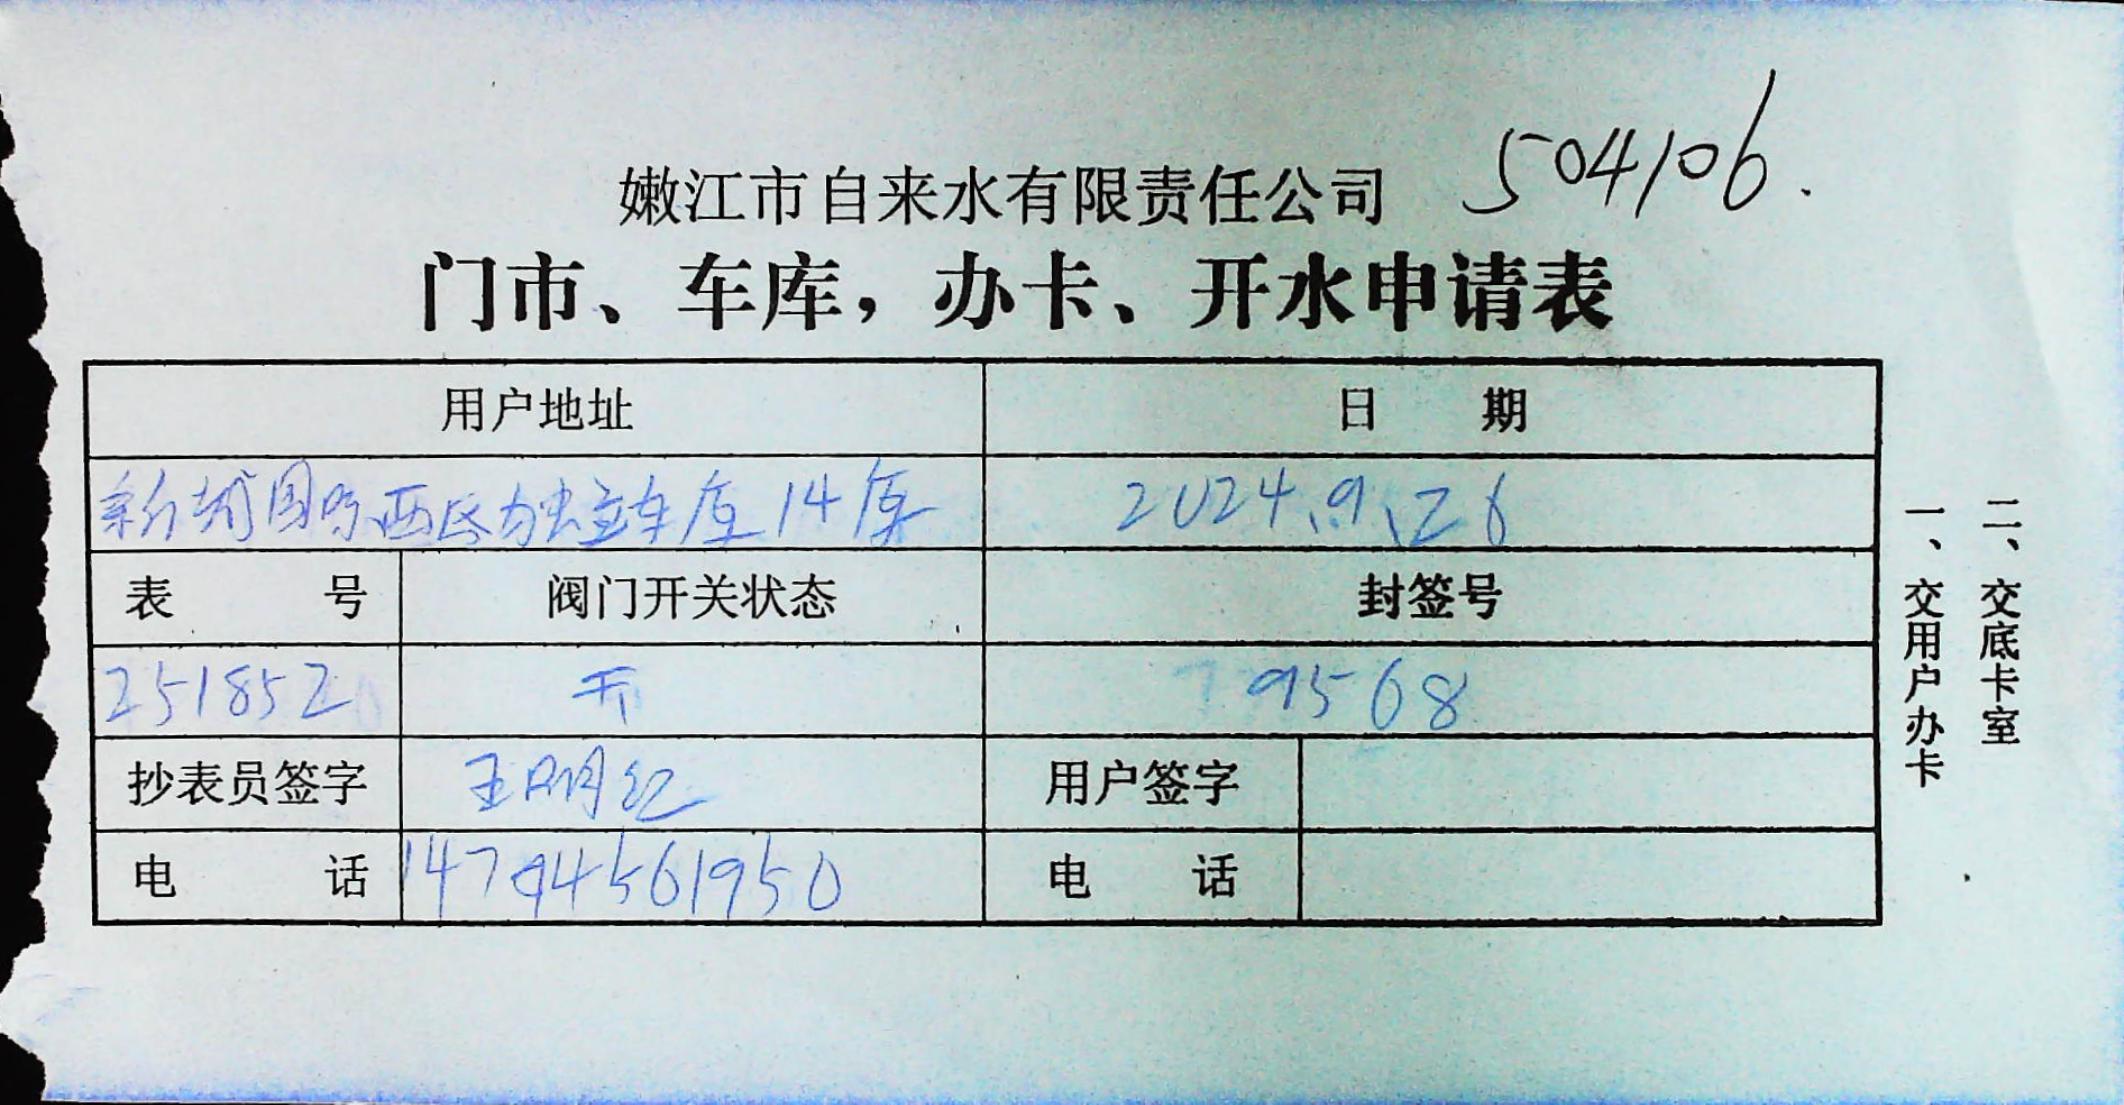 504106.
嫩江市自来水有限责任公司
门市、车库，办卡、开水申请表
用户地址 日 期
国际西 独立车库14 2024.9.26
表 号 阀门开关状态 封签号
251852 开 79568
抄表员签字 王明红 用户签字
电 话 14794561950 电 话
一、交用户办卡
二、交底卡室